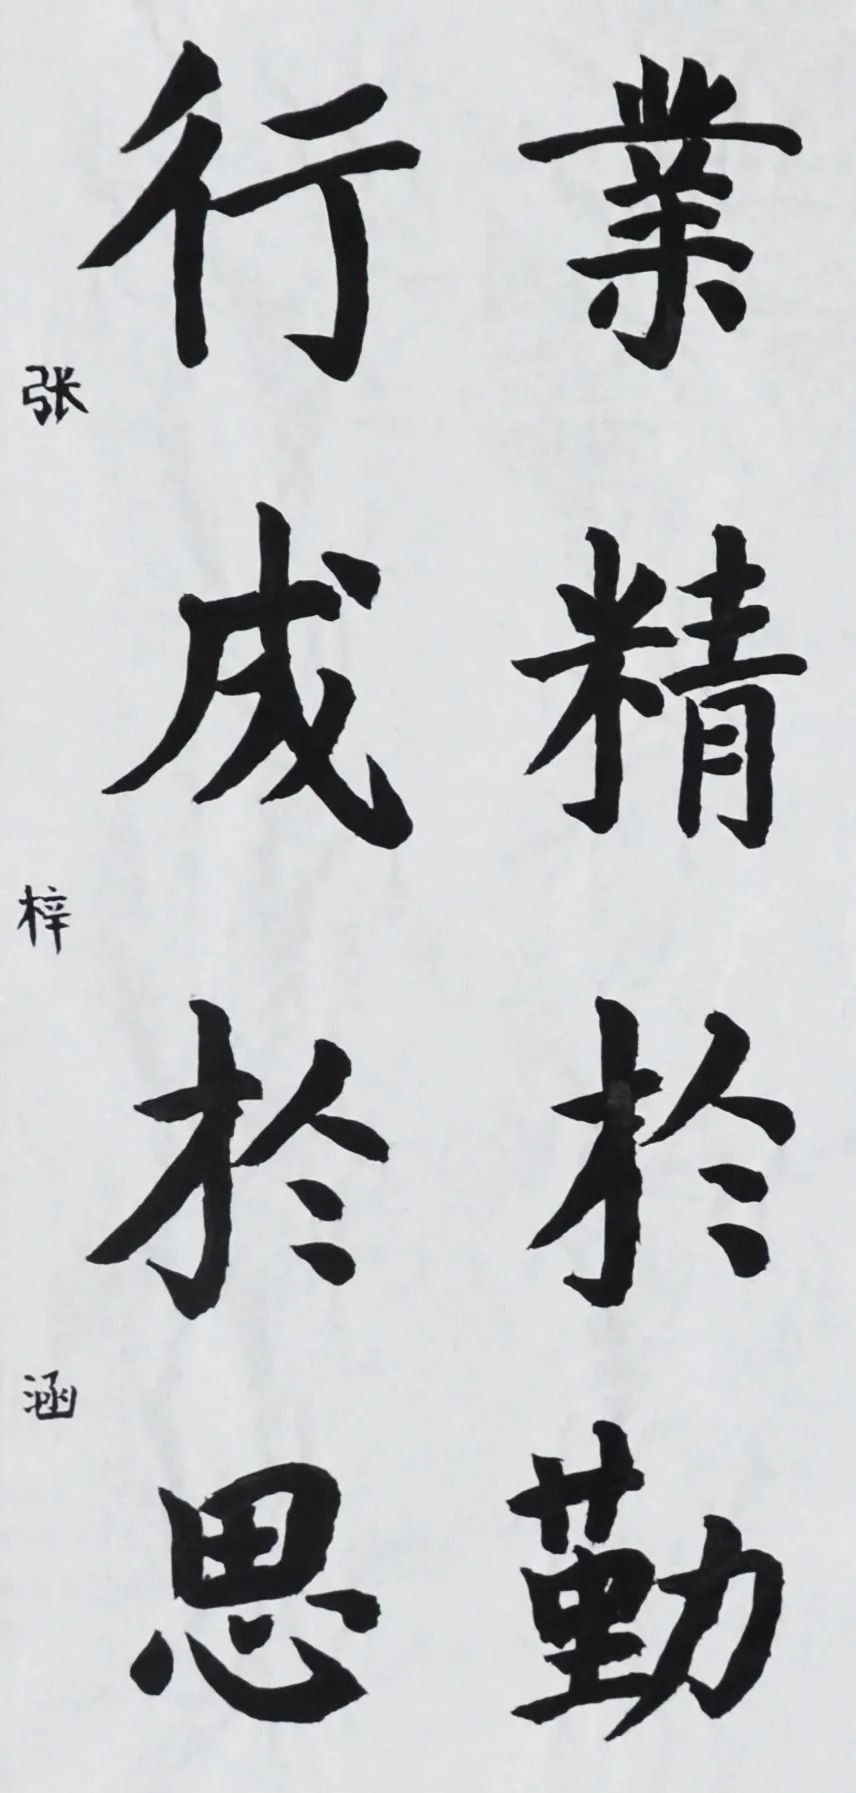 業精於勤
行成於思
张梓涵